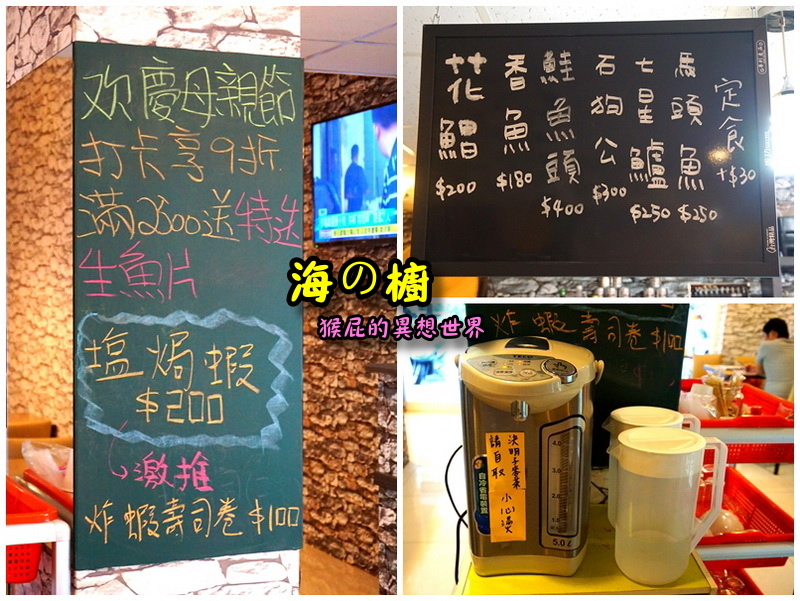 欢慶母親節
打卡享9折
滿2500送特送
生魚片
塩焗蝦
$200
激推
炸蝦壽司卷 $100
花鯝 $200
香魚 $180
鮭魚頭 $400
石狗公 $300
七星鱸 $250
馬頭魚 $250
定食 +$30
海の櫥
猴屁的異想世界
炸蝦壽司卷 $100
TECO
決明子麥茶
請自取 小心燙
自冷省電裝置
4.0
3.0
2.0
1.0
5.0ℓ